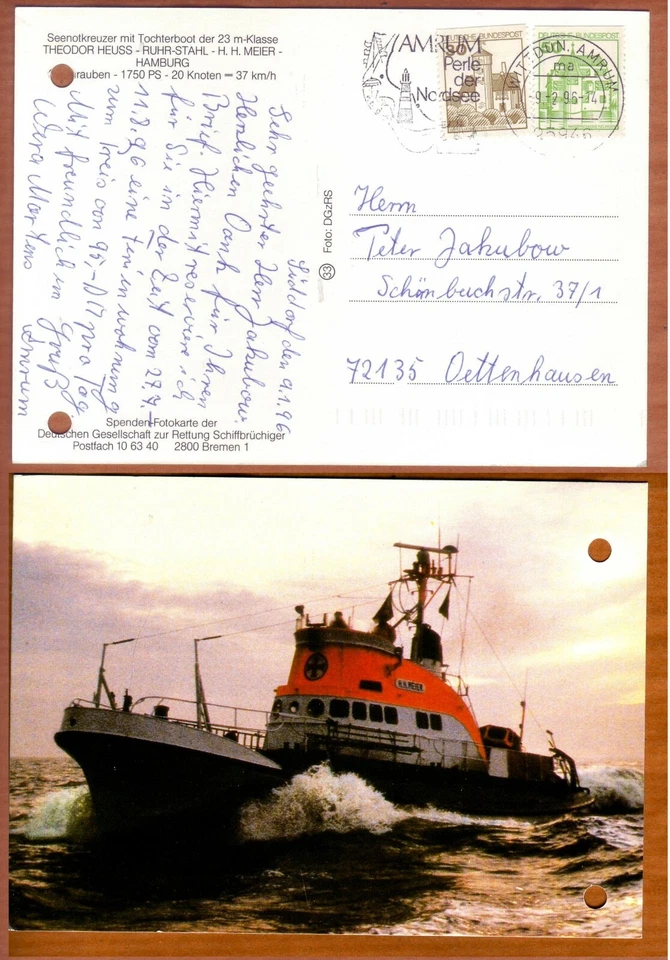 Seenotkreuzer mit Tochterboot der 23 m-Klasse
THEODOR HEUSS - RUHR-STAHL - H. H. MEIER -
HAMBURG
rauben - 1750 PS - 20 Knoten = 37 km/h
Süddorf den 9.1.96
Sehr geehrter Herr Jakubow.
Herzlichen Dank für Ihren
Brief. Hiermit reserviere ich
für Sie in der Zeit vom 27.7-
11.8.96 eine Ferienwohnung
zum Preis von 95-DM pro Tag
Mit freundlichem Gruß
Wera Martens Amrum
Spenden-Fotokarte der
Deutschen Gesellschaft zur Rettung Schiffbrüchiger
Postfach 10 63 40 2800 Bremen 1
33 Foto: DGzRS
AMRUM
Perle
der
Nordsee
DEUTSCHE BUNDESPOST
DEUTSCHE BUNDESPOST
AMRUM
ma
Herrn
Peter Jakubow
Schönbuchstr. 37/1
72135 Dettenhausen
H.H. MEIER